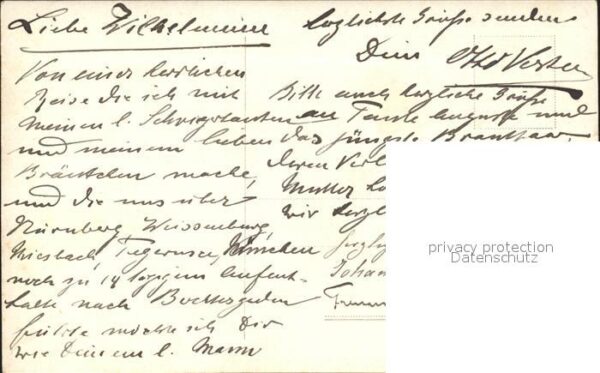 Liebe Wilhelmine
Von einer herrlichen
Reise die ich mit
meinen l. Schwiegereltern
und meinem lieben
Bräutchen mache,
und die uns über
Nürnberg, Weissenburg,
Miesbach, Tegernsee, München
noch zu 14 tägigem Aufent-
halt nach Berchtesgaden
führte möchte ich Dir
wie Deinem l. Mann
herzlichste Grüße senden
Dein Otto
Bitte auch herzliche Grüße
an Tante Auguste und
das jüngste Brautpaar
deren Verl
Mutter
wir herzl
Johan
privacy protection
Datenschutz